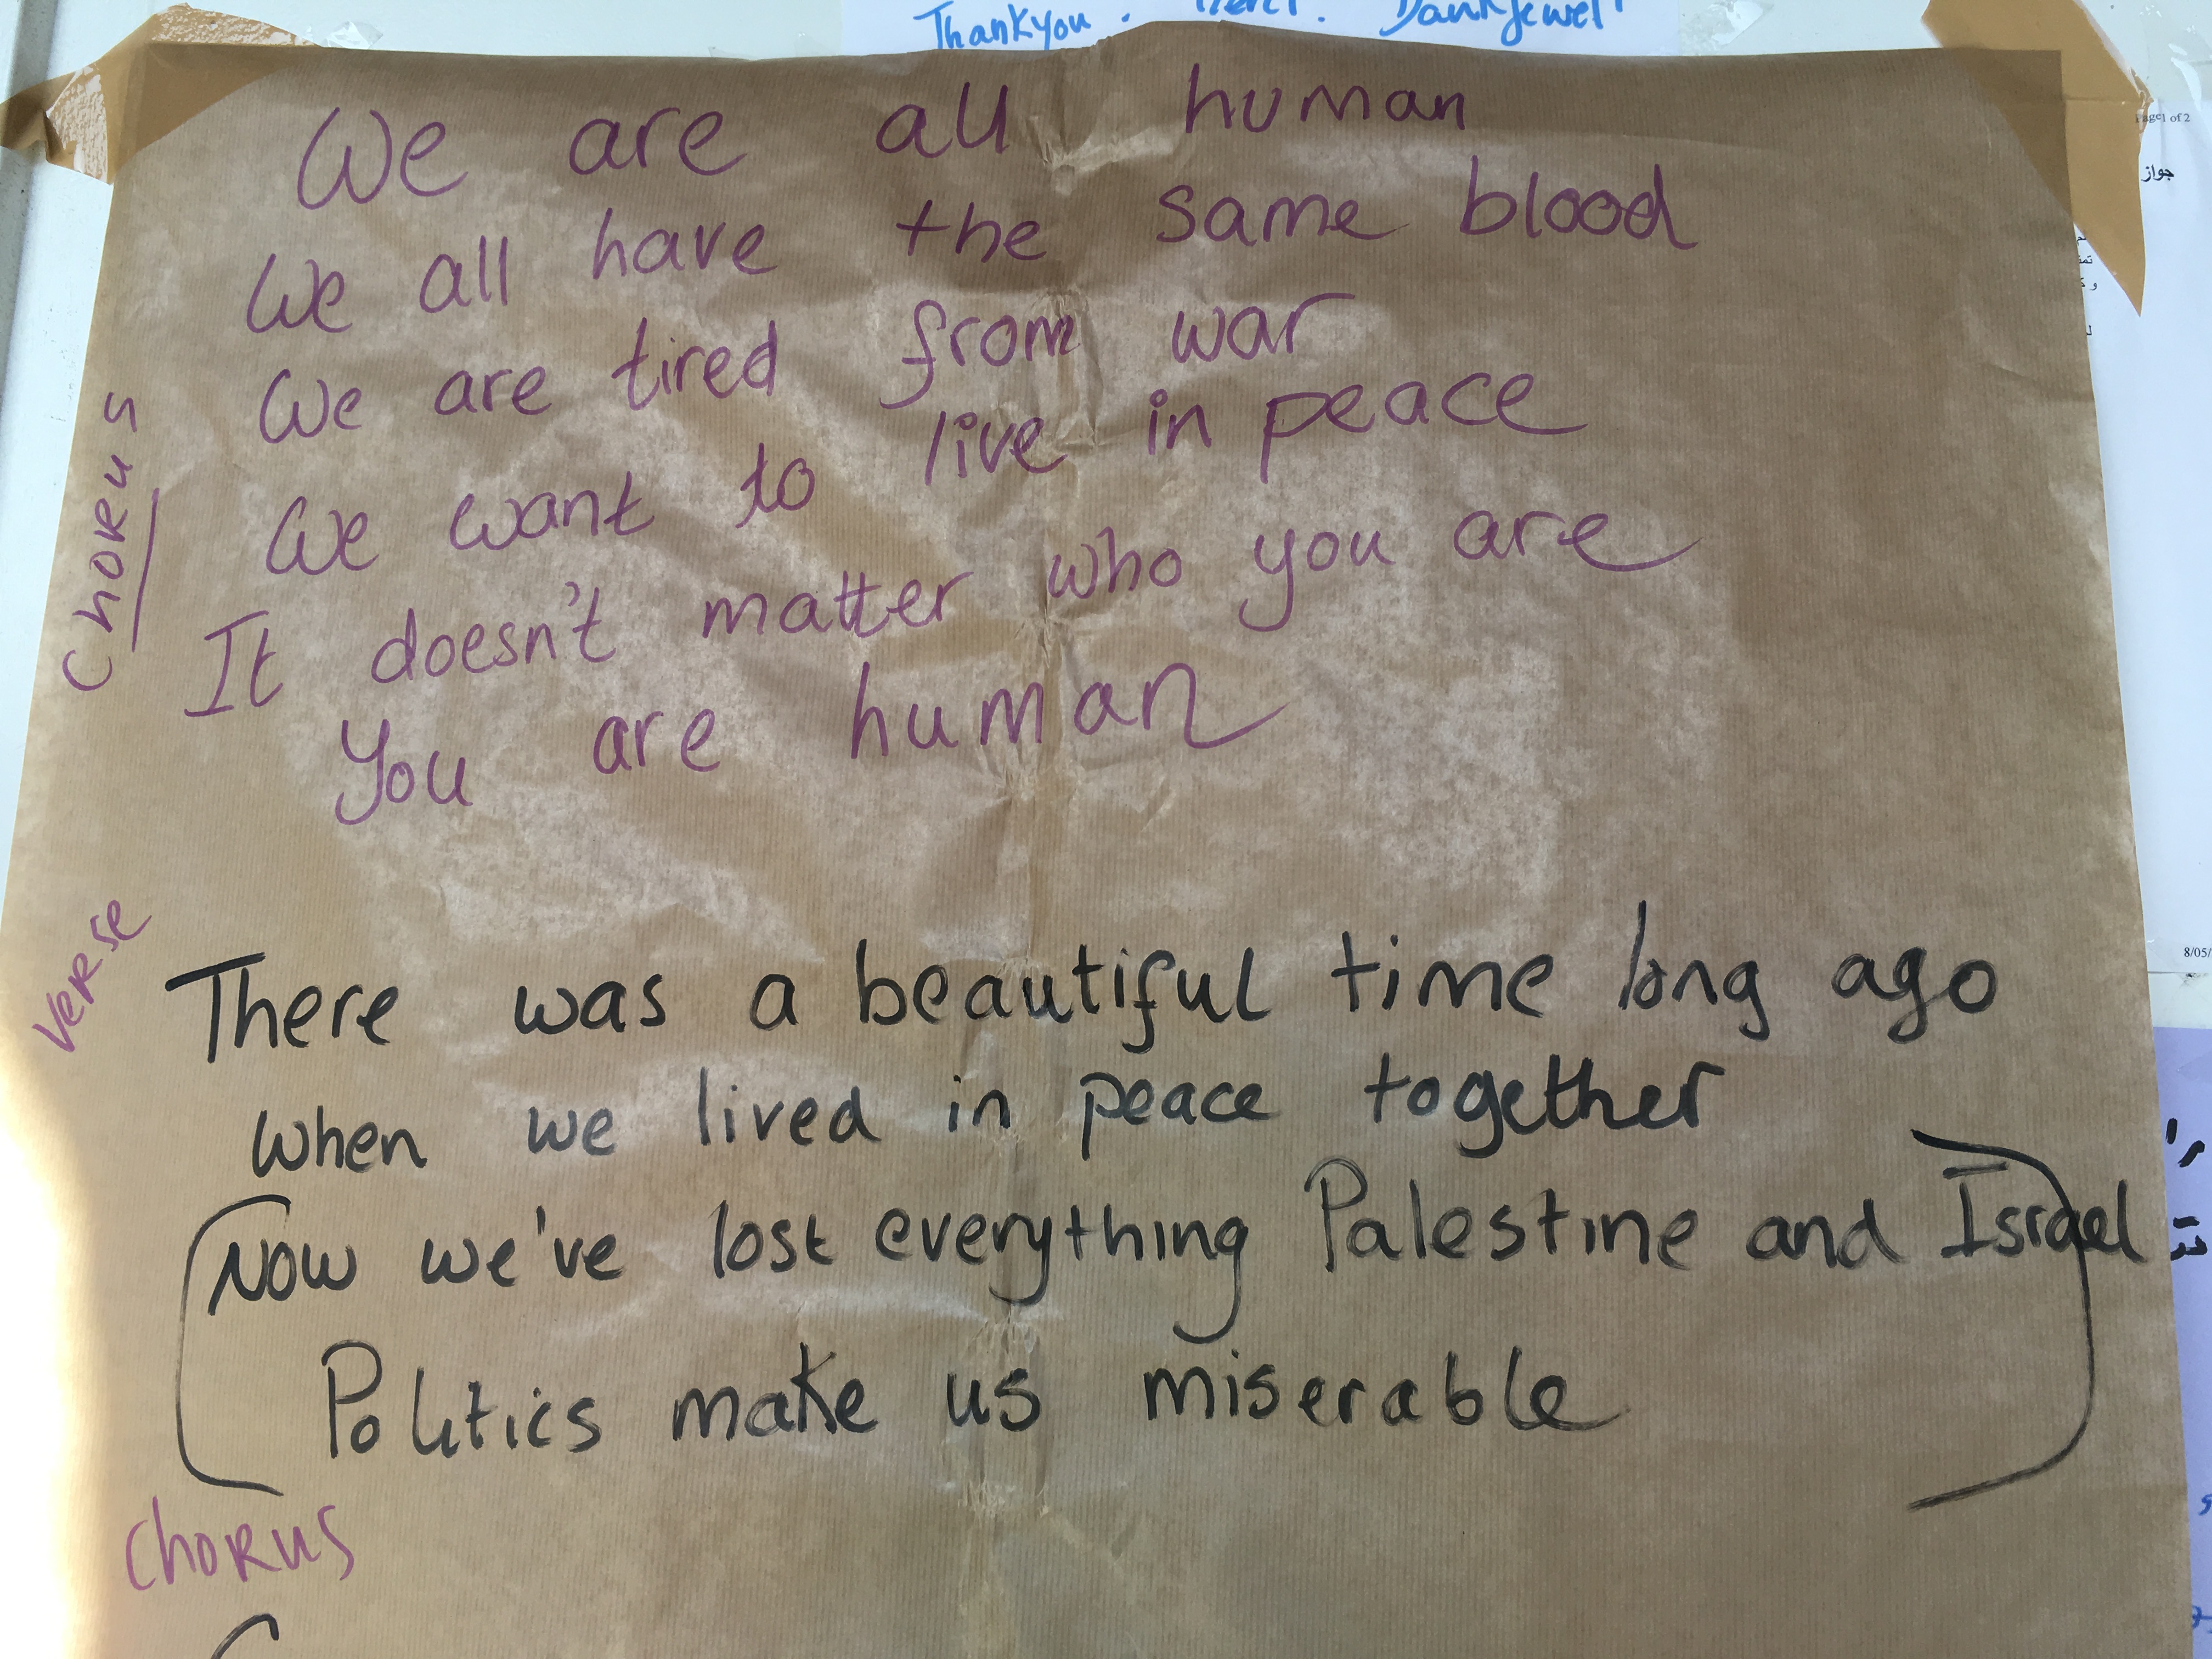 Thankyou. Merci. Dankjewel
Page1 of 2
جواز
We are all human
We all have the same blood
We are tired from war
We want to live in peace
It doesn't matter who you are
You are human
Chorus
Verse
There was a beautiful time long ago
when we lived in peace together
Now we've lost everything Palestine and Israel
Politics make us miserable
8/05/
Chorus